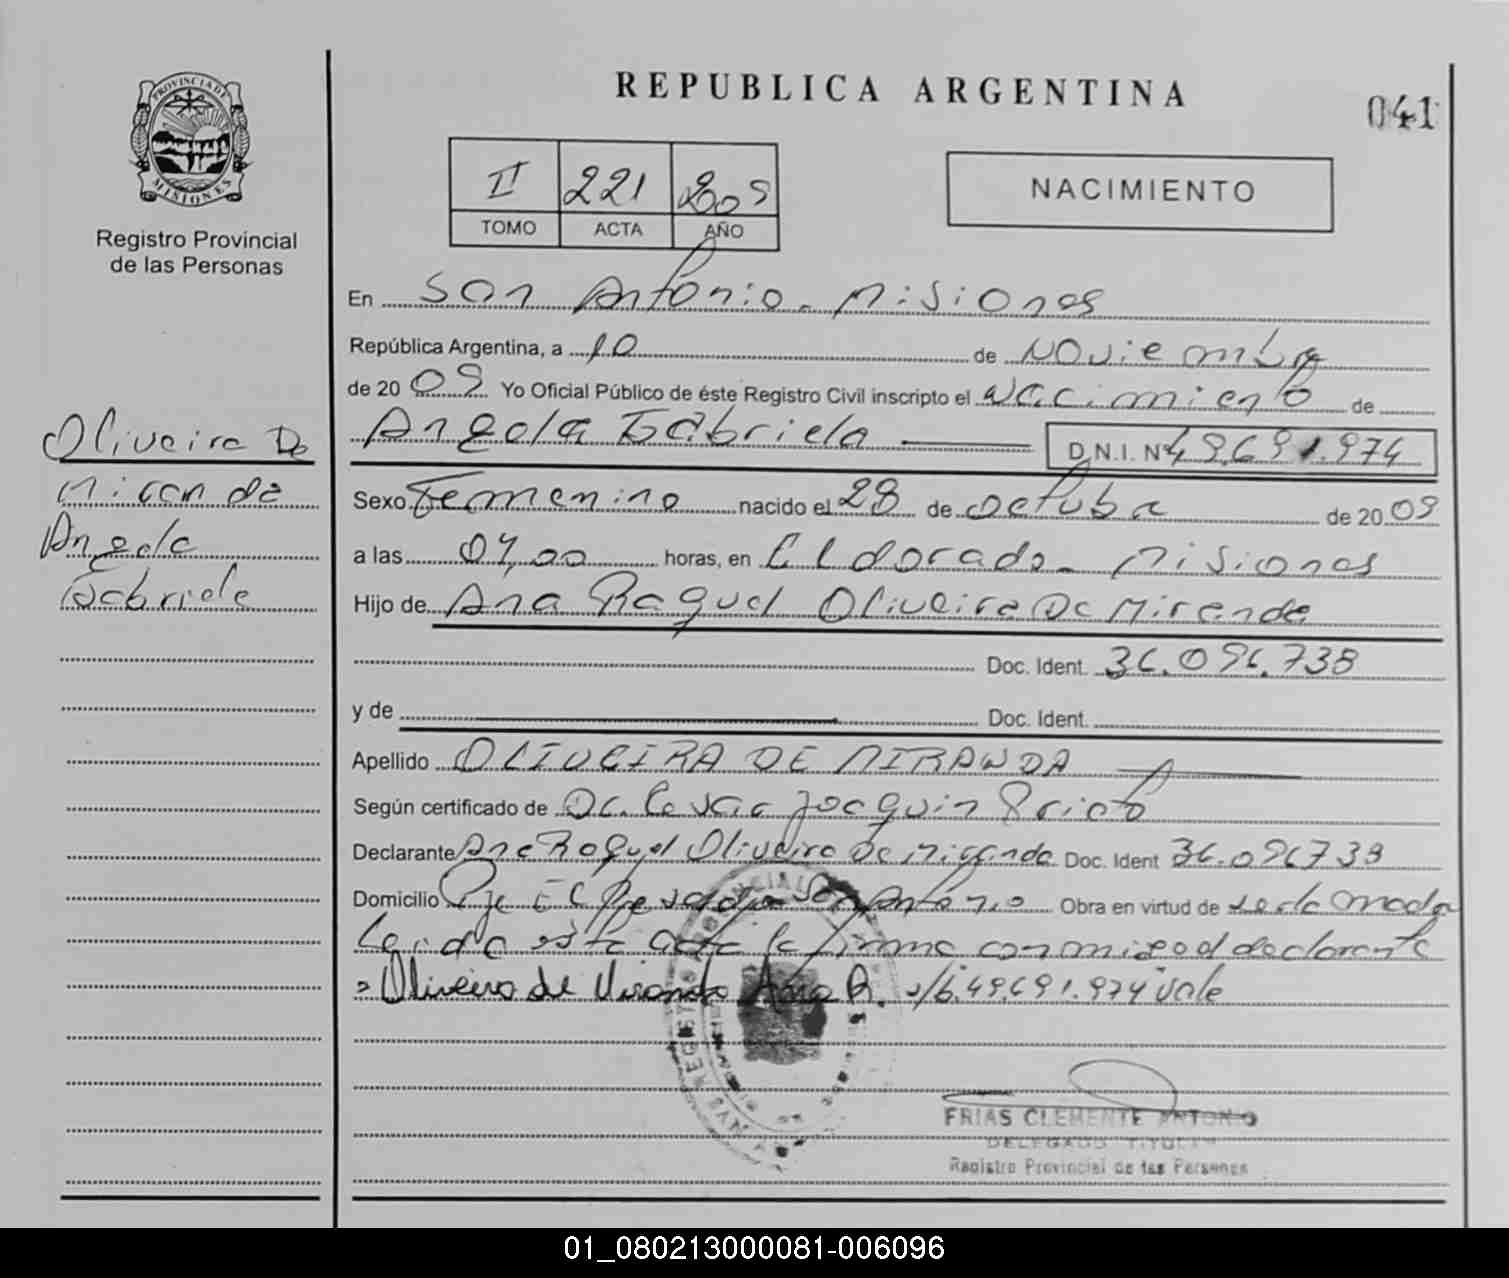 REPUBLICA ARGENTINA
041
PROVINCIA DE
MISIONES
Registro Provincial
de las Personas
II 221 2009
TOMO ACTA AÑO
NACIMIENTO
En San Antonio - Misiones
República Argentina, a 10 de Noviembre
de 2009 Yo Oficial Público de éste Registro Civil inscripto el Nacimiento de
Angela Gabriela D.N.I. Nº 49.691.974
Oliveira De
Miranda
Angela
Gabriela
Sexo Femenino nacido el 28 de octubre de 2009
a las 07,00 horas, en Eldorado - Misiones
Hijo de Ana Raquel Oliveira De Miranda
Doc. Ident. 36.096.738
y de Doc. Ident.
Apellido OLIVEIRA DE MIRANDA
Según certificado de Dr. Cesar Joaquin Prieto
Declarante Ana Raquel Oliveira De Miranda Doc. Ident 36.096.738
Domicilio San Antonio Obra en virtud de
Leida esta acta la firma conmigo el declarante
Oliveira de Miranda Ana R. s/b. 49.691.974 Vale
FRIAS CLEMENTE ANTONIO
DELEGADO TITULAR
Registro Provincial de las Personas
01_080213000081-006096